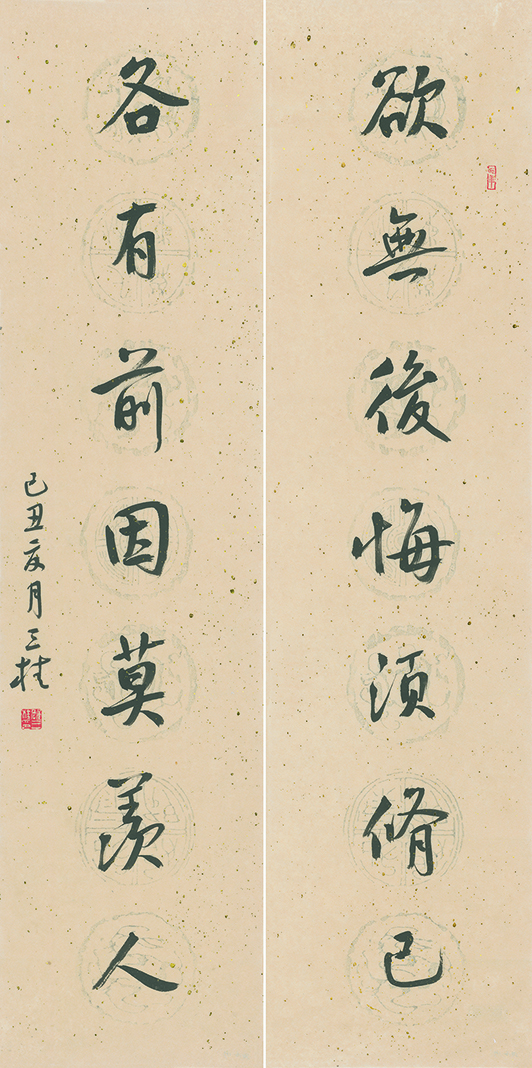 欲無後悔須脩己
各有前因莫羨人
己丑亥月三柱